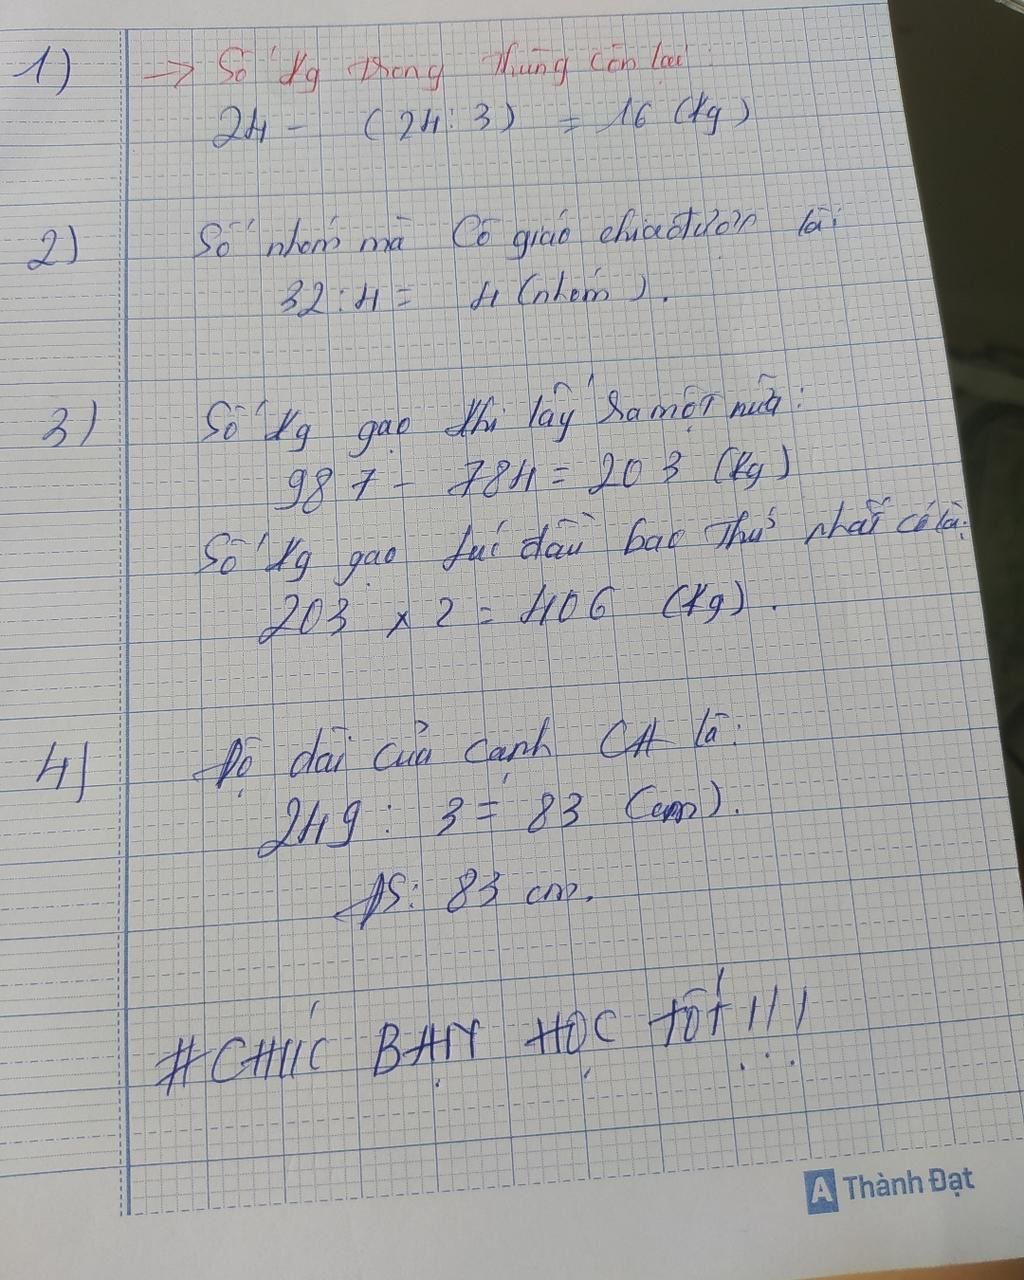 1) → Số kg trong thùng còn lại:
24 - (24 : 3) = 16 (kg)
2) Số nhóm mà cô giáo chia được là:
32 : 4 = 4 (nhóm).
3) Số kg gạo khi lấy ra một nửa:
987 - 784 = 203 (kg)
Số kg gạo lúc đầu bao thứ nhất có là:
203 x 2 = 406 (kg).
4) Độ dài của cạnh CA là:
249 : 3 = 83 (cm).
ĐS: 83 cm.
#CHÚC BẠN HỌC TỐT!!!
A Thành Đạt